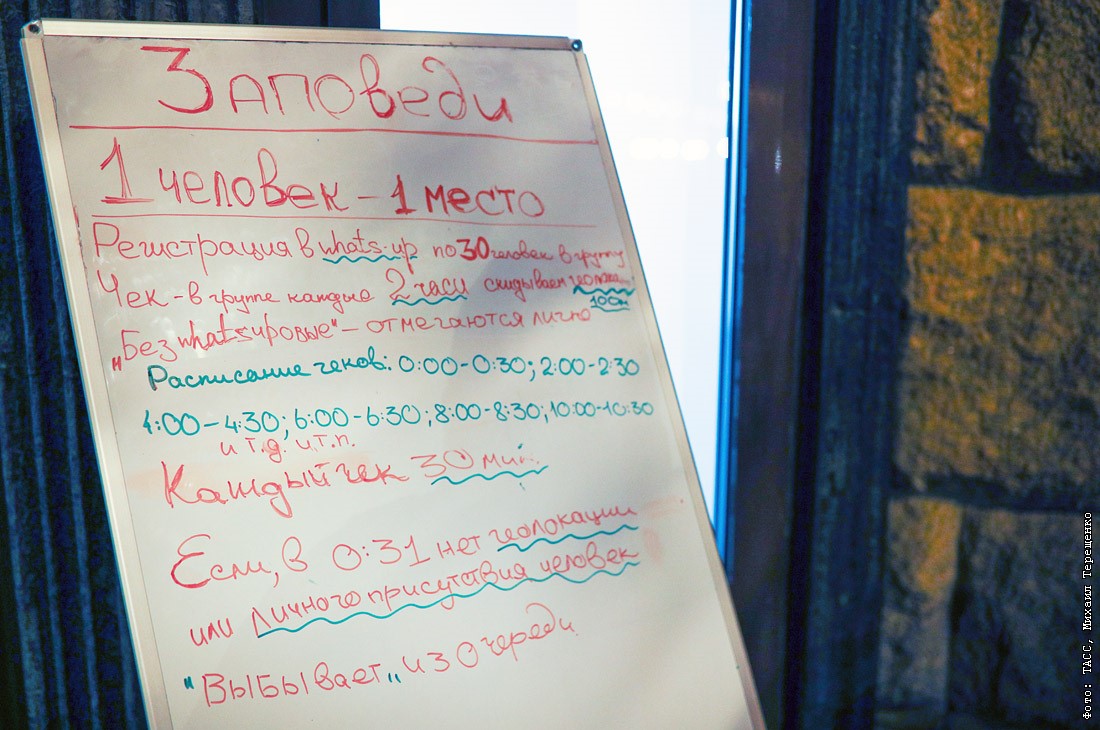 Заповеди
1 человек - 1 место
Регистрация в whats-up по 30 человек в группу
Чек - в группе каждые 2 часа скидываем
100м
"Без whatsupовые" - отмечаются лично
Расписание чеков: 0:00-0:30; 2:00-2:30
4:00-4:30; 6:00-6:30; 8:00-8:30; 10:00-10:30
и т.д. и.т.п.
Каждый чек 30 мин.
Если, в 0:31 нет геолокации
или личного присутствия человек
"Выбывает" из очереди
Фото: ТАСС, Михаил Терещенко